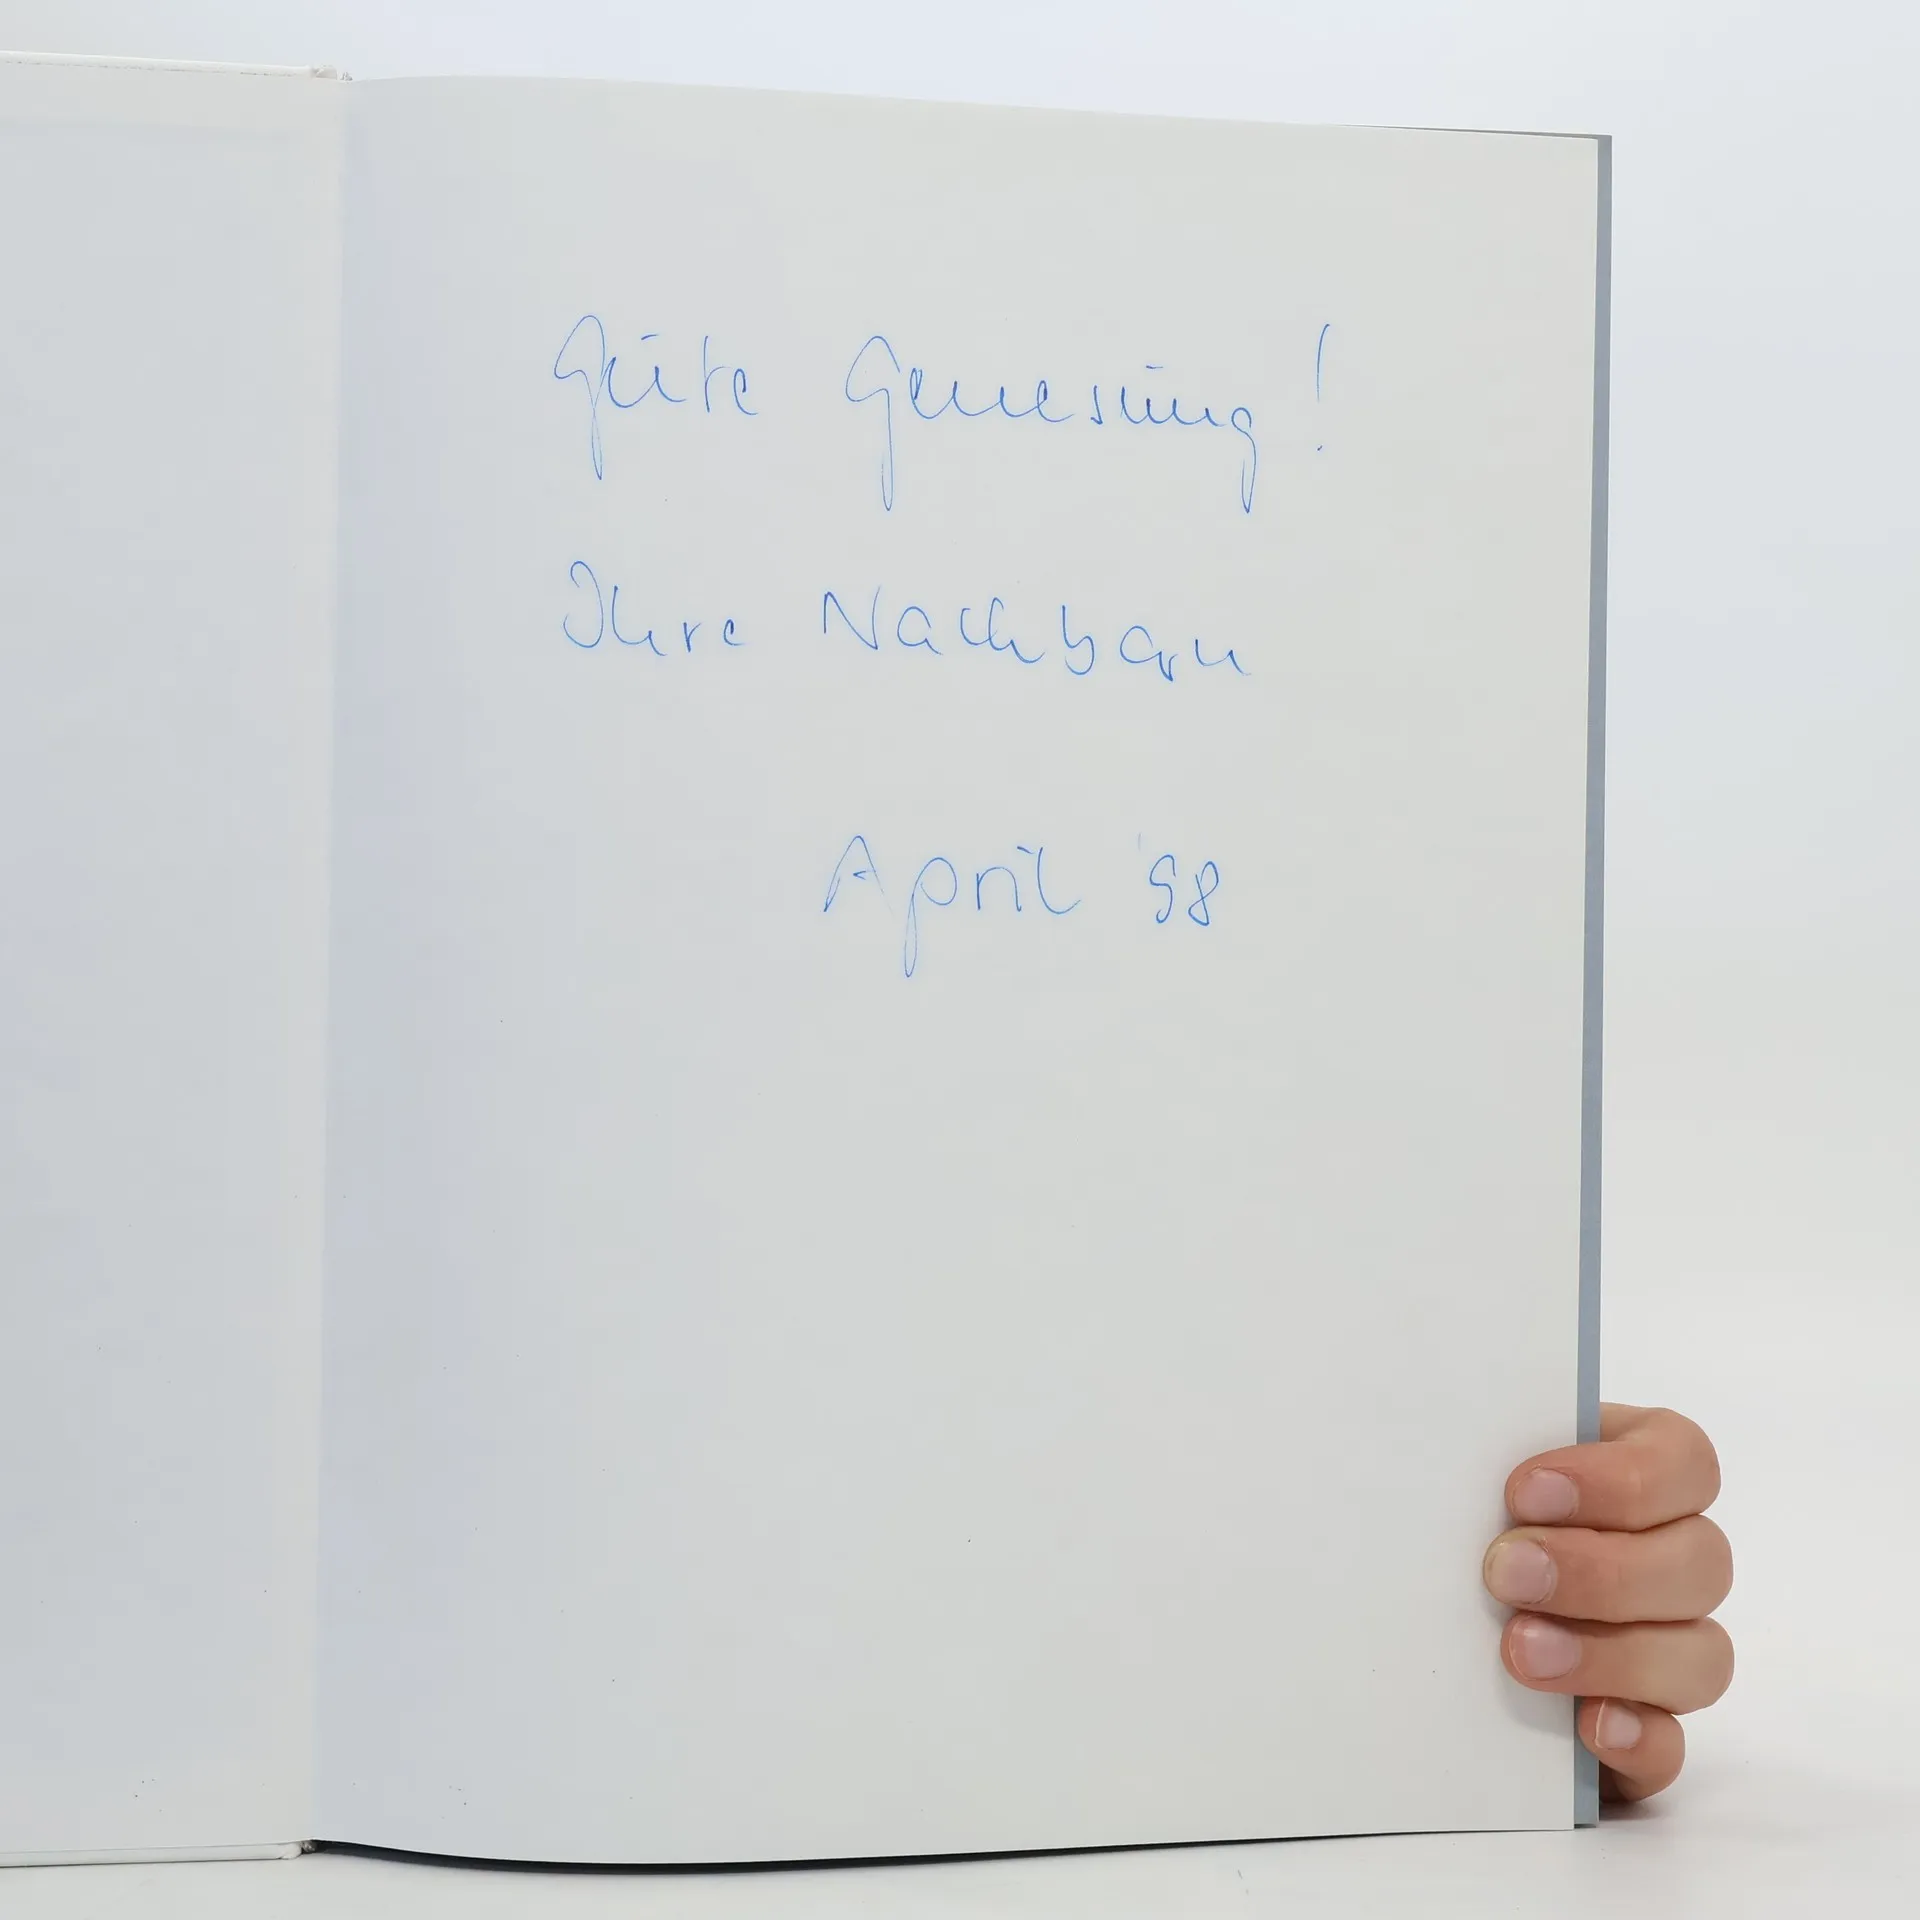 Gute Genesung!
Ihre Nachbarn
April '98